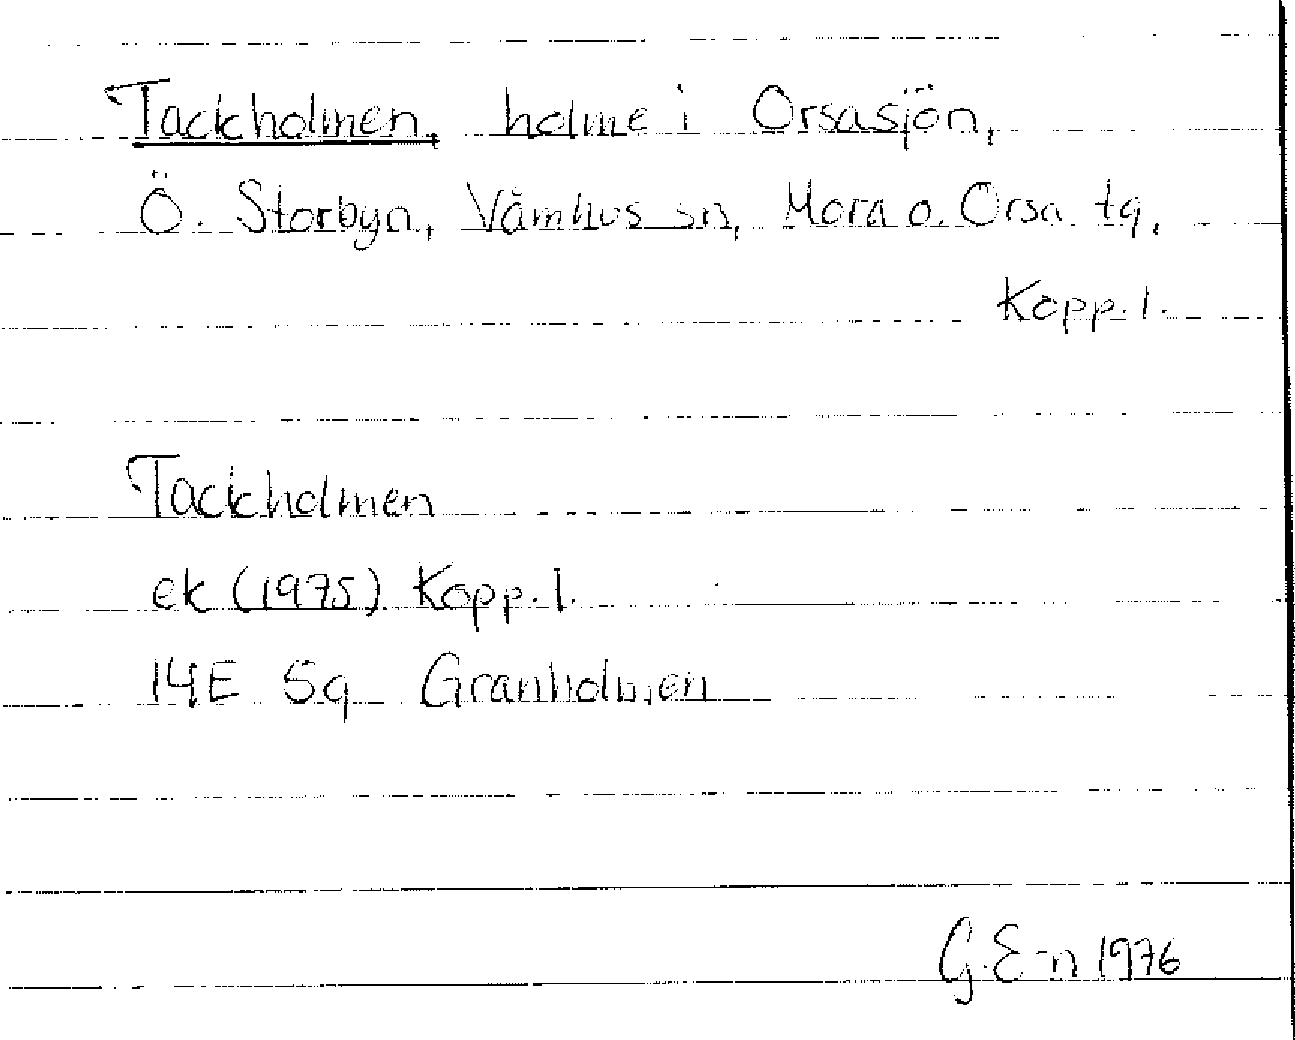 Tackholmen, holme i Orsasjön,
Ö. Storbyn, Våmhus sn, Mora o. Orsa tg,
Kopp. l.
Tackholmen
ek (1975) Kopp. l.
14E 5g Granholmen
G. E-n 1976